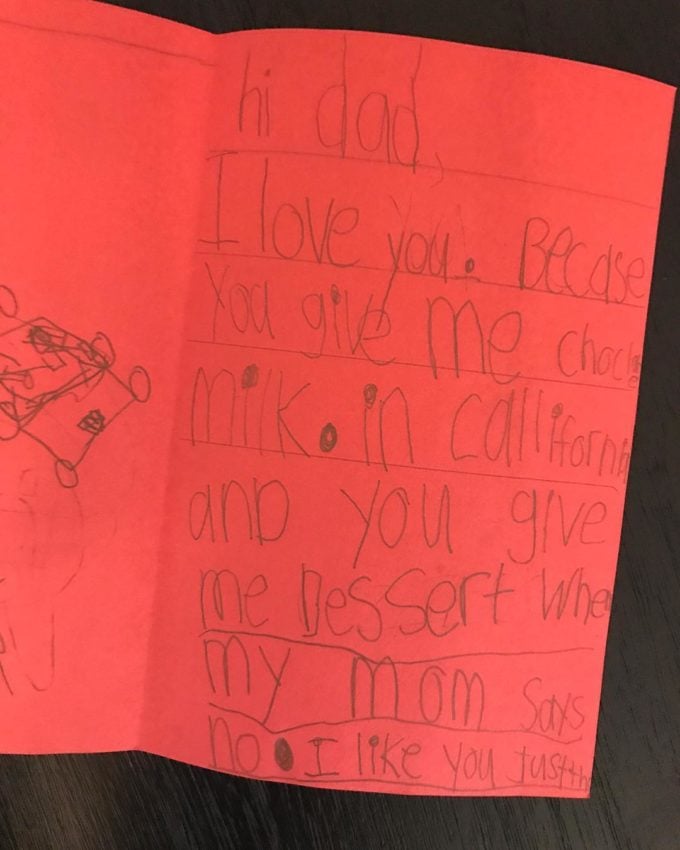 hi dad,
I love you. Becase
You give me choclo
milk. in callifornia
anD you give
me Dessert When
my mom says
no. I like you just